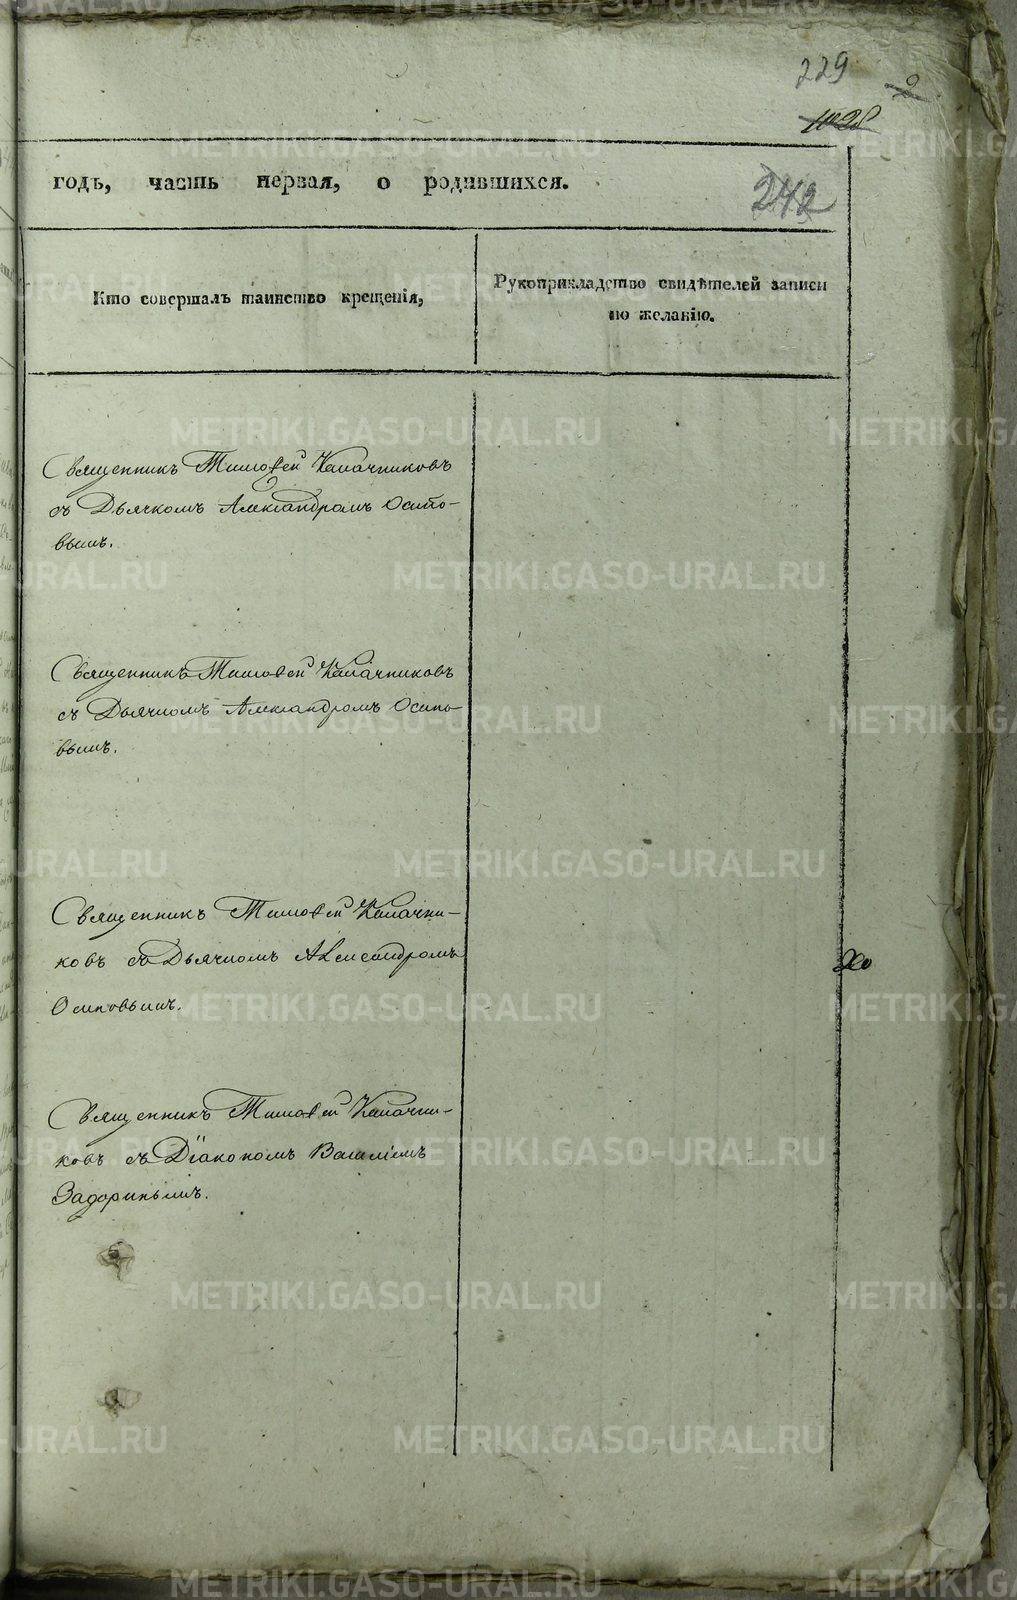 229
2
1028
годъ, часть первая, о родившихся.
242
Кто совершалъ таинство крещенія,
Рукоприкладство свидѣтелей записи
по желанію.
Священникъ Тимофей Калачниковъ
съ Дьячкомъ Александромъ Осипо-
вымъ.
Священникъ Тимофей Калачниковъ
съ Дьячкомъ Александромъ Осипо-
вымъ.
Священникъ Тимофей Калачни-
ковъ съ Дьячкомъ Александромъ
Осиповымъ.
Священникъ Тимофей Калачни-
ковъ съ Діакономъ Василіемъ
Задоринымъ.
METRIKI.GASO-URAL.RU